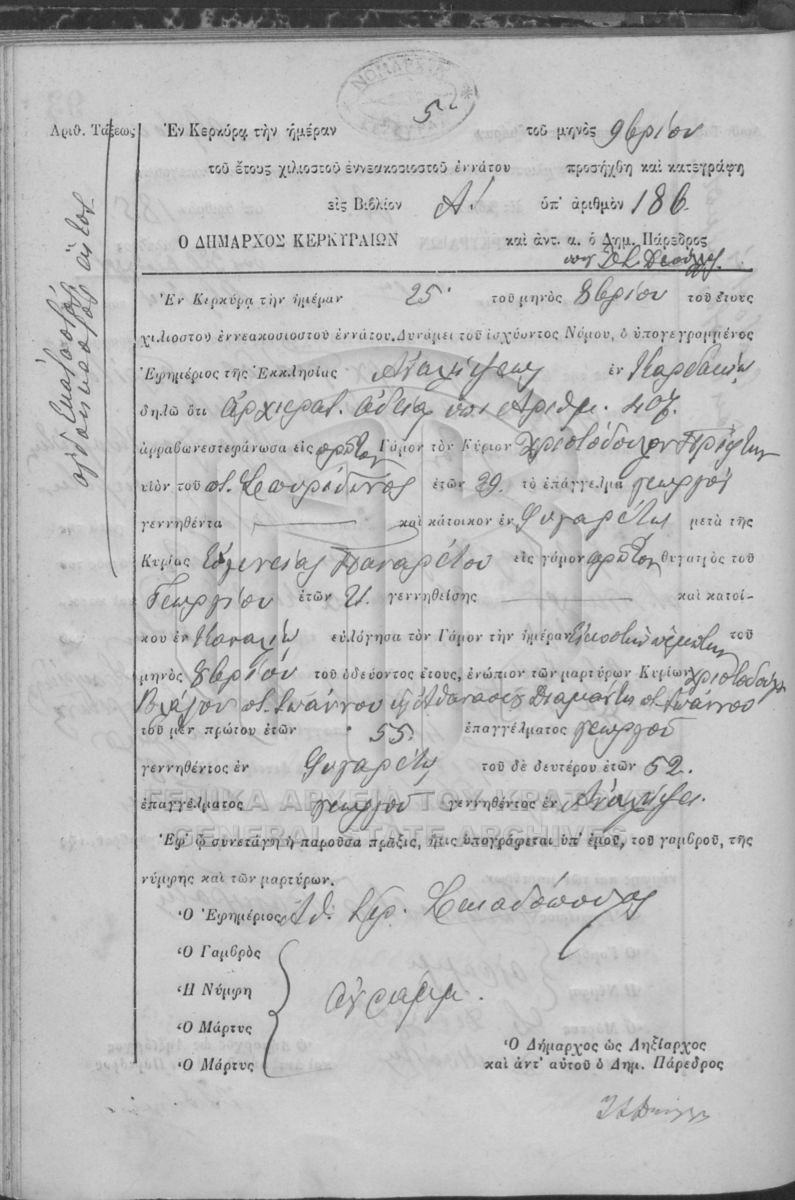 ΝΟΜΑΡΧΙΑ ΚΕΡΚΥΡΑΣ
Ἀριθ. Τάξεως
Ἐν Κερκύρᾳ τὴν ἡμέραν 5 τοῦ μηνὸς 9βρίου
τοῦ ἔτους χιλιοστοῦ ἐννεακοσιοστοῦ ἐννάτου προσήχθη καὶ κατεγράφη
εἰς Βιβλίον Α΄. ὑπ' ἀριθμὸν 186.
Ο ΔΗΜΑΡΧΟΣ ΚΕΡΚΥΡΑΙΩΝ καὶ ἀντ. α. ὁ Δημ. Πάρεδρος
Ἐν Κερκύρᾳ τὴν ἡμέραν 25 τοῦ μηνὸς 8βρίου τοῦ ἔτους
χιλιοστοῦ ἐννεακοσιοστοῦ ἐννάτου. Δυνάμει τοῦ ἰσχύοντος Νόμου, ὁ ὑπογεγραμμένος
Ἐφημέριος τῆς Ἐκκλησίας Ἀναλήψεως ἐν
δηλῶ ὅτι ἀρχιερατ. ἀδείᾳ ὑπ' ἀριθμ.
ἀρραβωνεστεφάνωσα εἰς πρῶτον Γάμον τὸν Κύριον Χριστόδουλον Πρίφτην
υἱὸν τοῦ π. Σπυρίδωνος ἐτῶν 29. τὸ ἐπάγγελμα γεωργὸς
γεννηθέντα καὶ κάτοικον ἐν Συγαρέτῳ μετὰ τῆς
Κυρίας Εὐγενείας Παναρέτου εἰς γάμον πρῶτον θυγατρὸς τοῦ
Γεωργίου ἐτῶν 21. γεννηθείσης καὶ κατοί-
κου ἐν εὐλόγησα τὸν Γάμον τὴν ἡμέραν Εἰκοστὴν πέμπτην τοῦ
μηνὸς 8βρίου τοῦ ὁδεύοντος ἔτους, ἐνώπιον τῶν μαρτύρων Κυρίων Χριστοδούλου
Βλάχου π. Ἰωάννου καὶ Ἀθανασίου Διαμάντη π. Ἰωάννου
τοῦ μὲν πρώτου ἐτῶν 55. ἐπαγγέλματος γεωργοῦ
γεννηθέντος ἐν Συγαρέτῳ τοῦ δὲ δευτέρου ἐτῶν 52.
ἐπαγγέλματος γεωργοῦ γεννηθέντος ἐν Ἀναλήψει.
ΓΕΝΙΚΑ ΑΡΧΕΙΑ ΤΟΥ ΚΡΑΤΟΥΣ
GENERAL STATE ARCHIVES
Ἐφ' ᾧ συνετάγη ἡ παροῦσα πρᾶξις, ἥτις ὑπογράφεται ὑπ' ἐμοῦ, τοῦ γαμβροῦ, τῆς
νύμφης καὶ τῶν μαρτύρων.
Ὁ Ἐφημέριος
Ὁ Γαμβρὸς
Ἡ Νύμφη ἀγράμμ.
Ὁ Μάρτυς
Ὁ Μάρτυς
Ὁ Δήμαρχος ὡς Ληξίαρχος
καὶ ἀντ' αὐτοῦ ὁ Δημ. Πάρεδρος